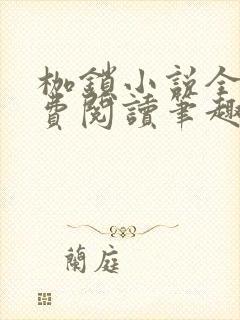 枷鎖小說全
費閱讀筆趣
蘭庭